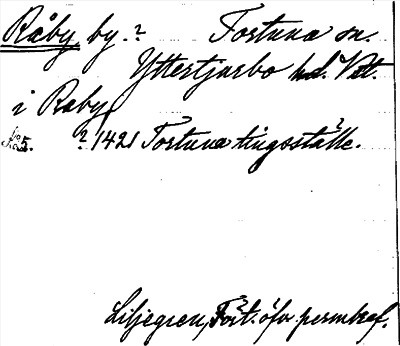 Råby by.? Fortuna sn.
Yttertjurbo hd. Vstl.
i Raby
N:o 5. ? 1421 Fortuna tingsställe.
Liljegren, Fört. öfv. permbref.